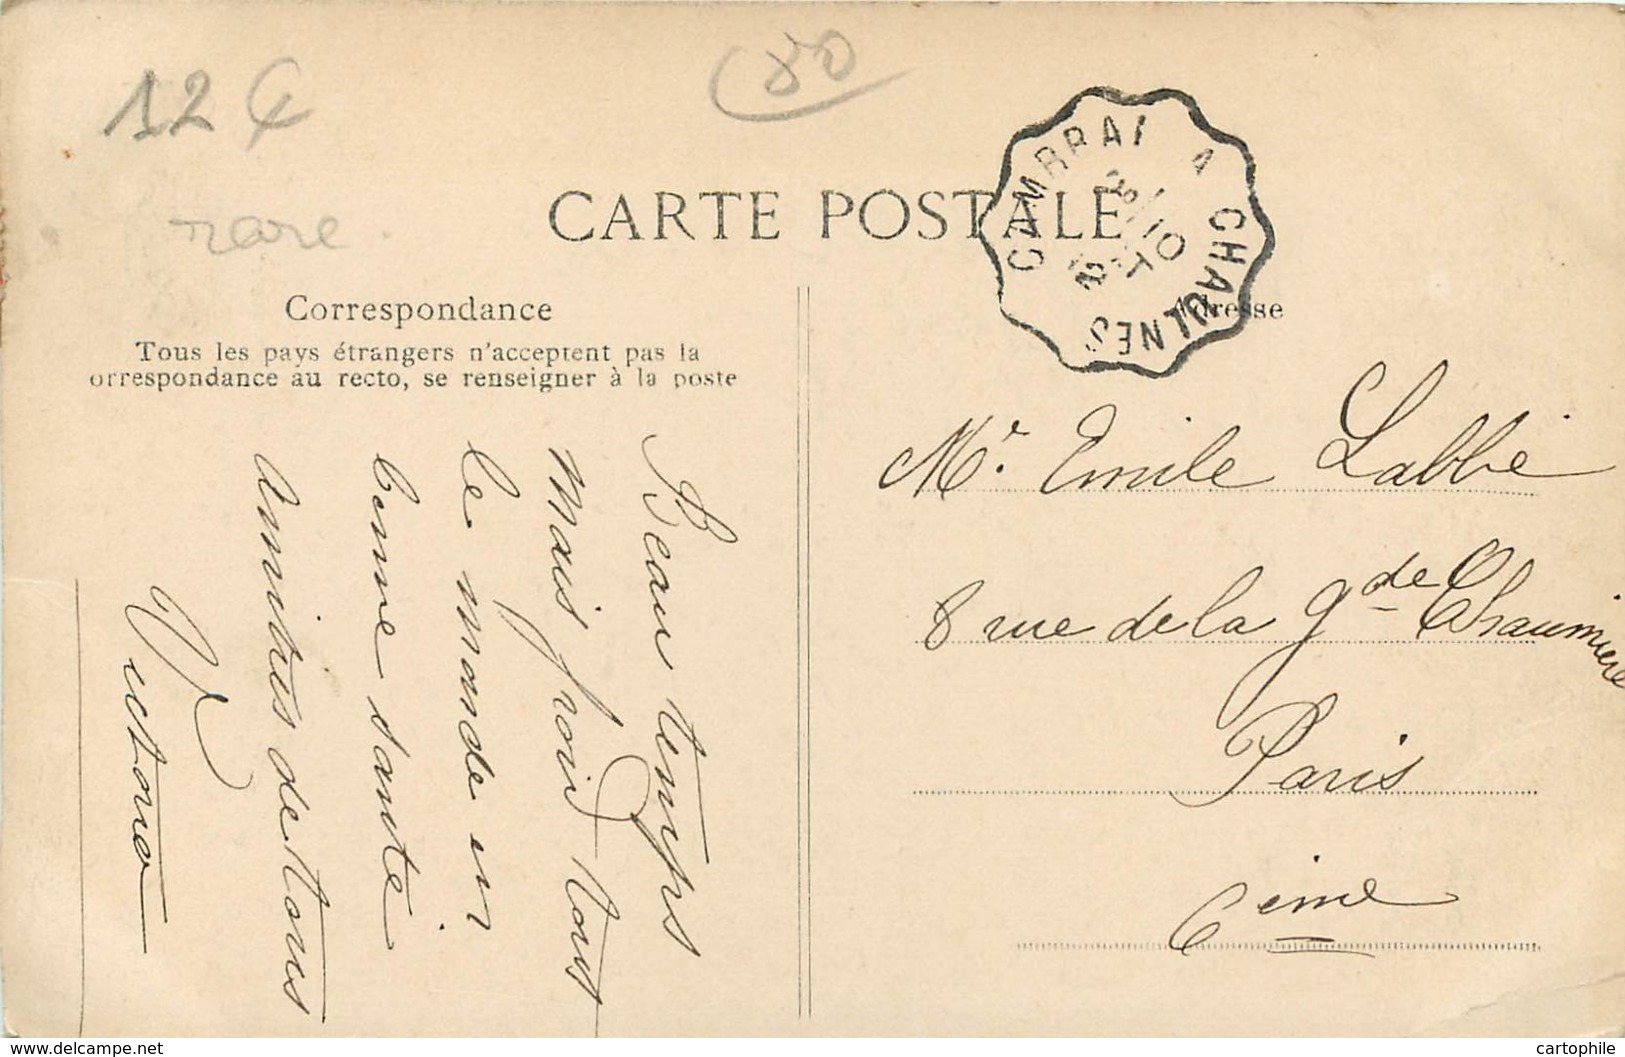 12 €
(80)
rare
CARTE POSTALE
CAMBRAI A CHAULNES
10
Correspondance
Adresse
Tous les pays étrangers n'acceptent pas la
orrespondance au recto, se renseigner à la poste
Beau temps
mais froid tout
le monde en
bonne santé
Amitiés de tous
Mr. Emile Labbé
8 rue de la gde Chaumière
Paris
6eime
www.delcampe.net
cartophile